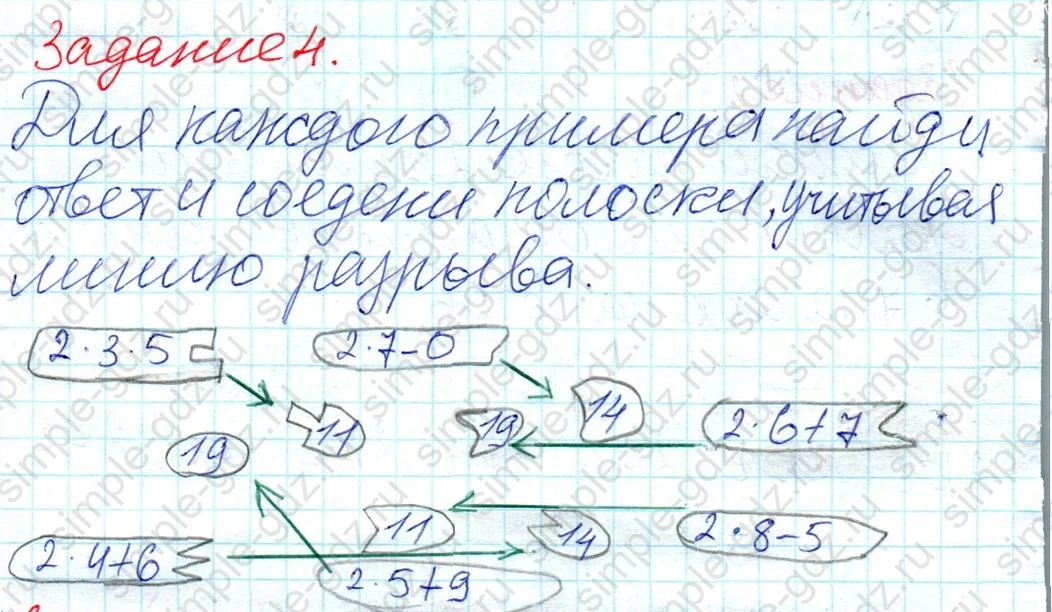 Задание 4.
Для каждого примера найди
ответ и соедени полоски, учитывая
линию разрыва.
2·3·5 2·7-0
14
11 19 2·6+7
19
11 14 2·8-5
2·4+6 2·5+9
simple-gdz.ru